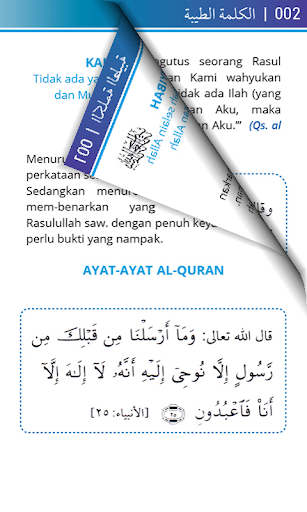 002 | الكلمة الطيبة
KA gutus seorang Rasul
Tidak ada ya an Kami wahyukan
dan Mu idak ada Ilah (yang
an Aku, maka
an Aku.'" (Qs. al
001 | الكلمة الطيبة
Menuru
perkataan se
Sedangkan menuru
mem-benarkan yang
Rasulullah saw. dengan penuh key
perlu bukti yang nampak.
AYAT-AYAT AL-QURAN
قال الله تعالى: وَمَآ أَرْسَلْنَا مِن قَبْلِكَ مِن
رَّسُولٍ إِلَّا نُوحِىٓ إِلَيْهِ أَنَّهُۥ لَآ إِلَـٰهَ إِلَّآ
أَنَا۠ فَٱعْبُدُونِ ٢٥ [الأنبياء: ٢٥]